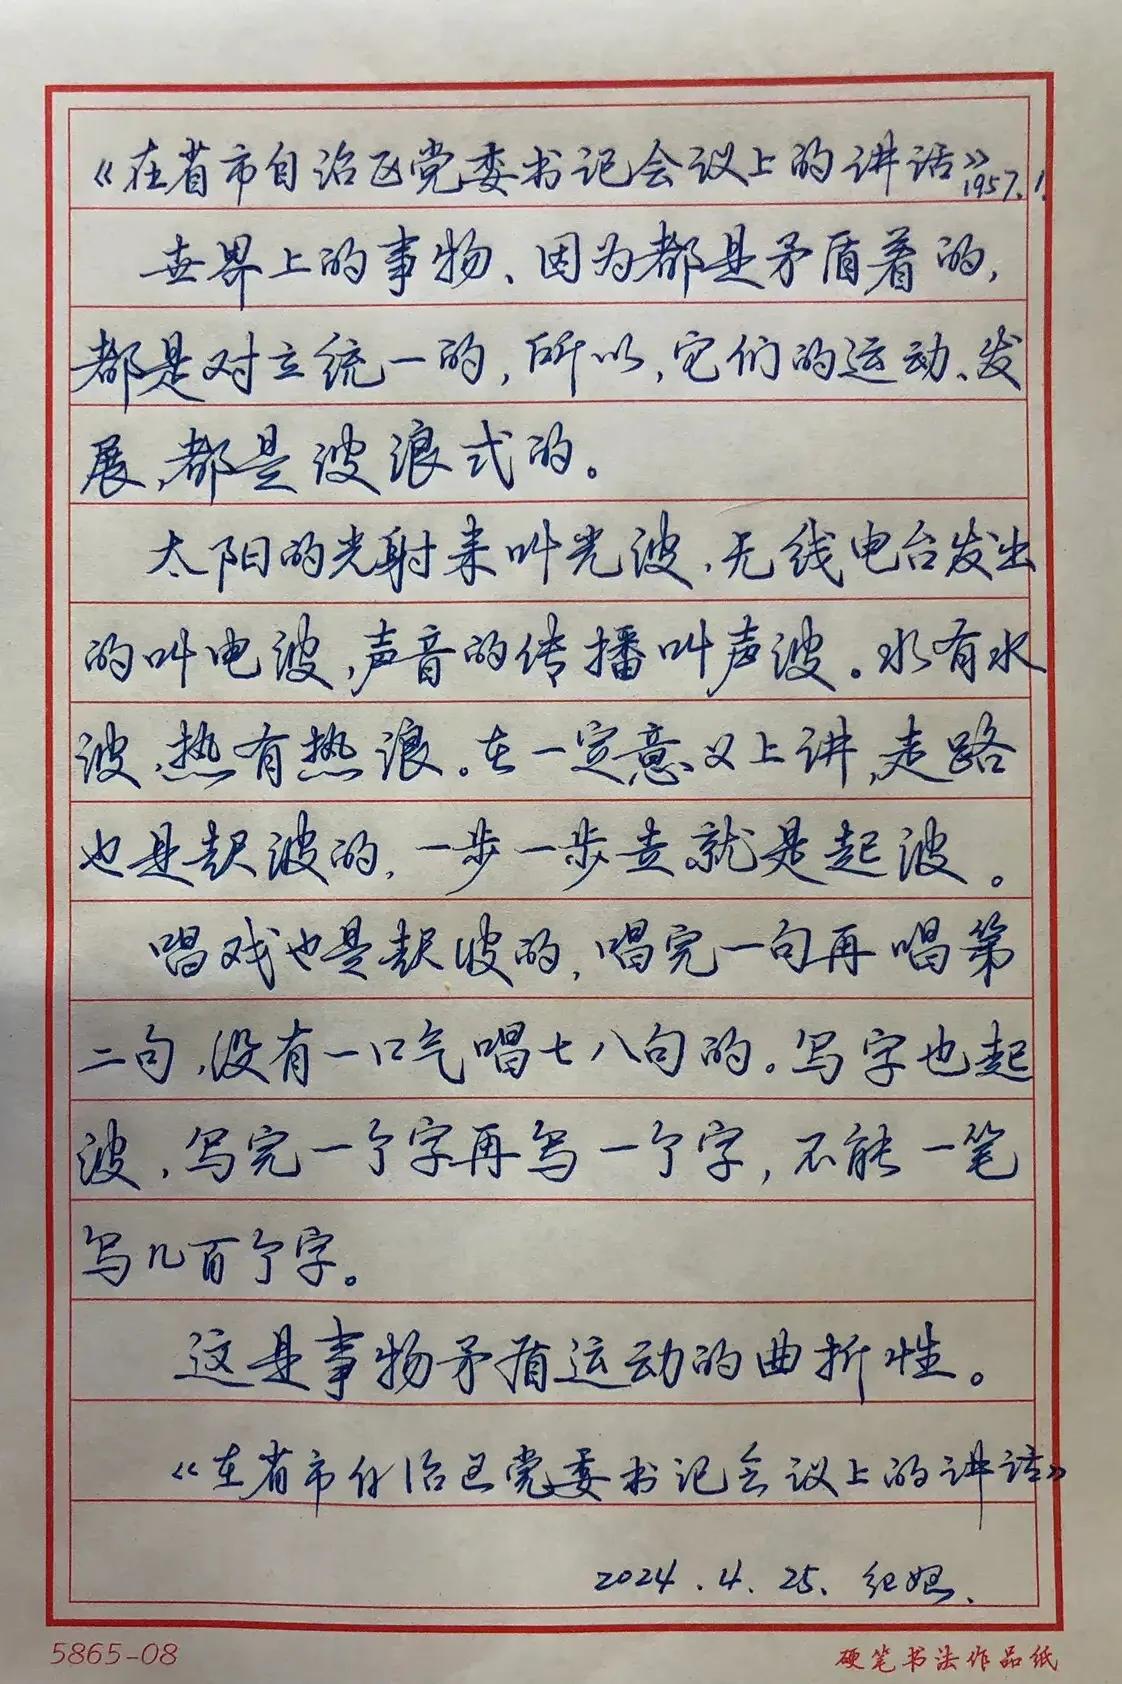 《在省市自治区党委书记会议上的讲话》1957.1
世界上的事物、因为都是矛盾着的，
都是对立统一的，所以，它们的运动、发
展，都是波浪式的。
太阳的光射来叫光波，无线电台发出
的叫电波，声音的传播叫声波。水有水
波，热有热浪。在一定意义上讲，走路
也是起波的，一步一步走就是起波。
唱戏也是起波的，唱完一句再唱第
二句，没有一口气唱七八句的。写字也起
波，写完一个字再写一个字，不能一笔
写几百个字。
这是事物矛盾运动的曲折性。
《在省市自治区党委书记会议上的讲话》
2024.4.25.
5865-08
硬笔书法作品纸